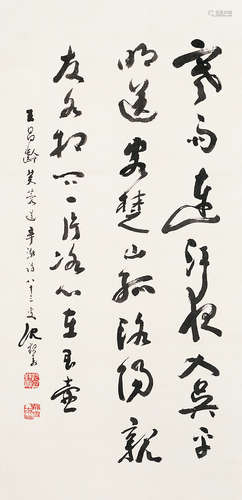 寒雨連江夜入吳平
明送客楚山孤洛陽親
友如相問一片冰心在玉壺
王昌齡芙蓉送辛漸詩八十三叟